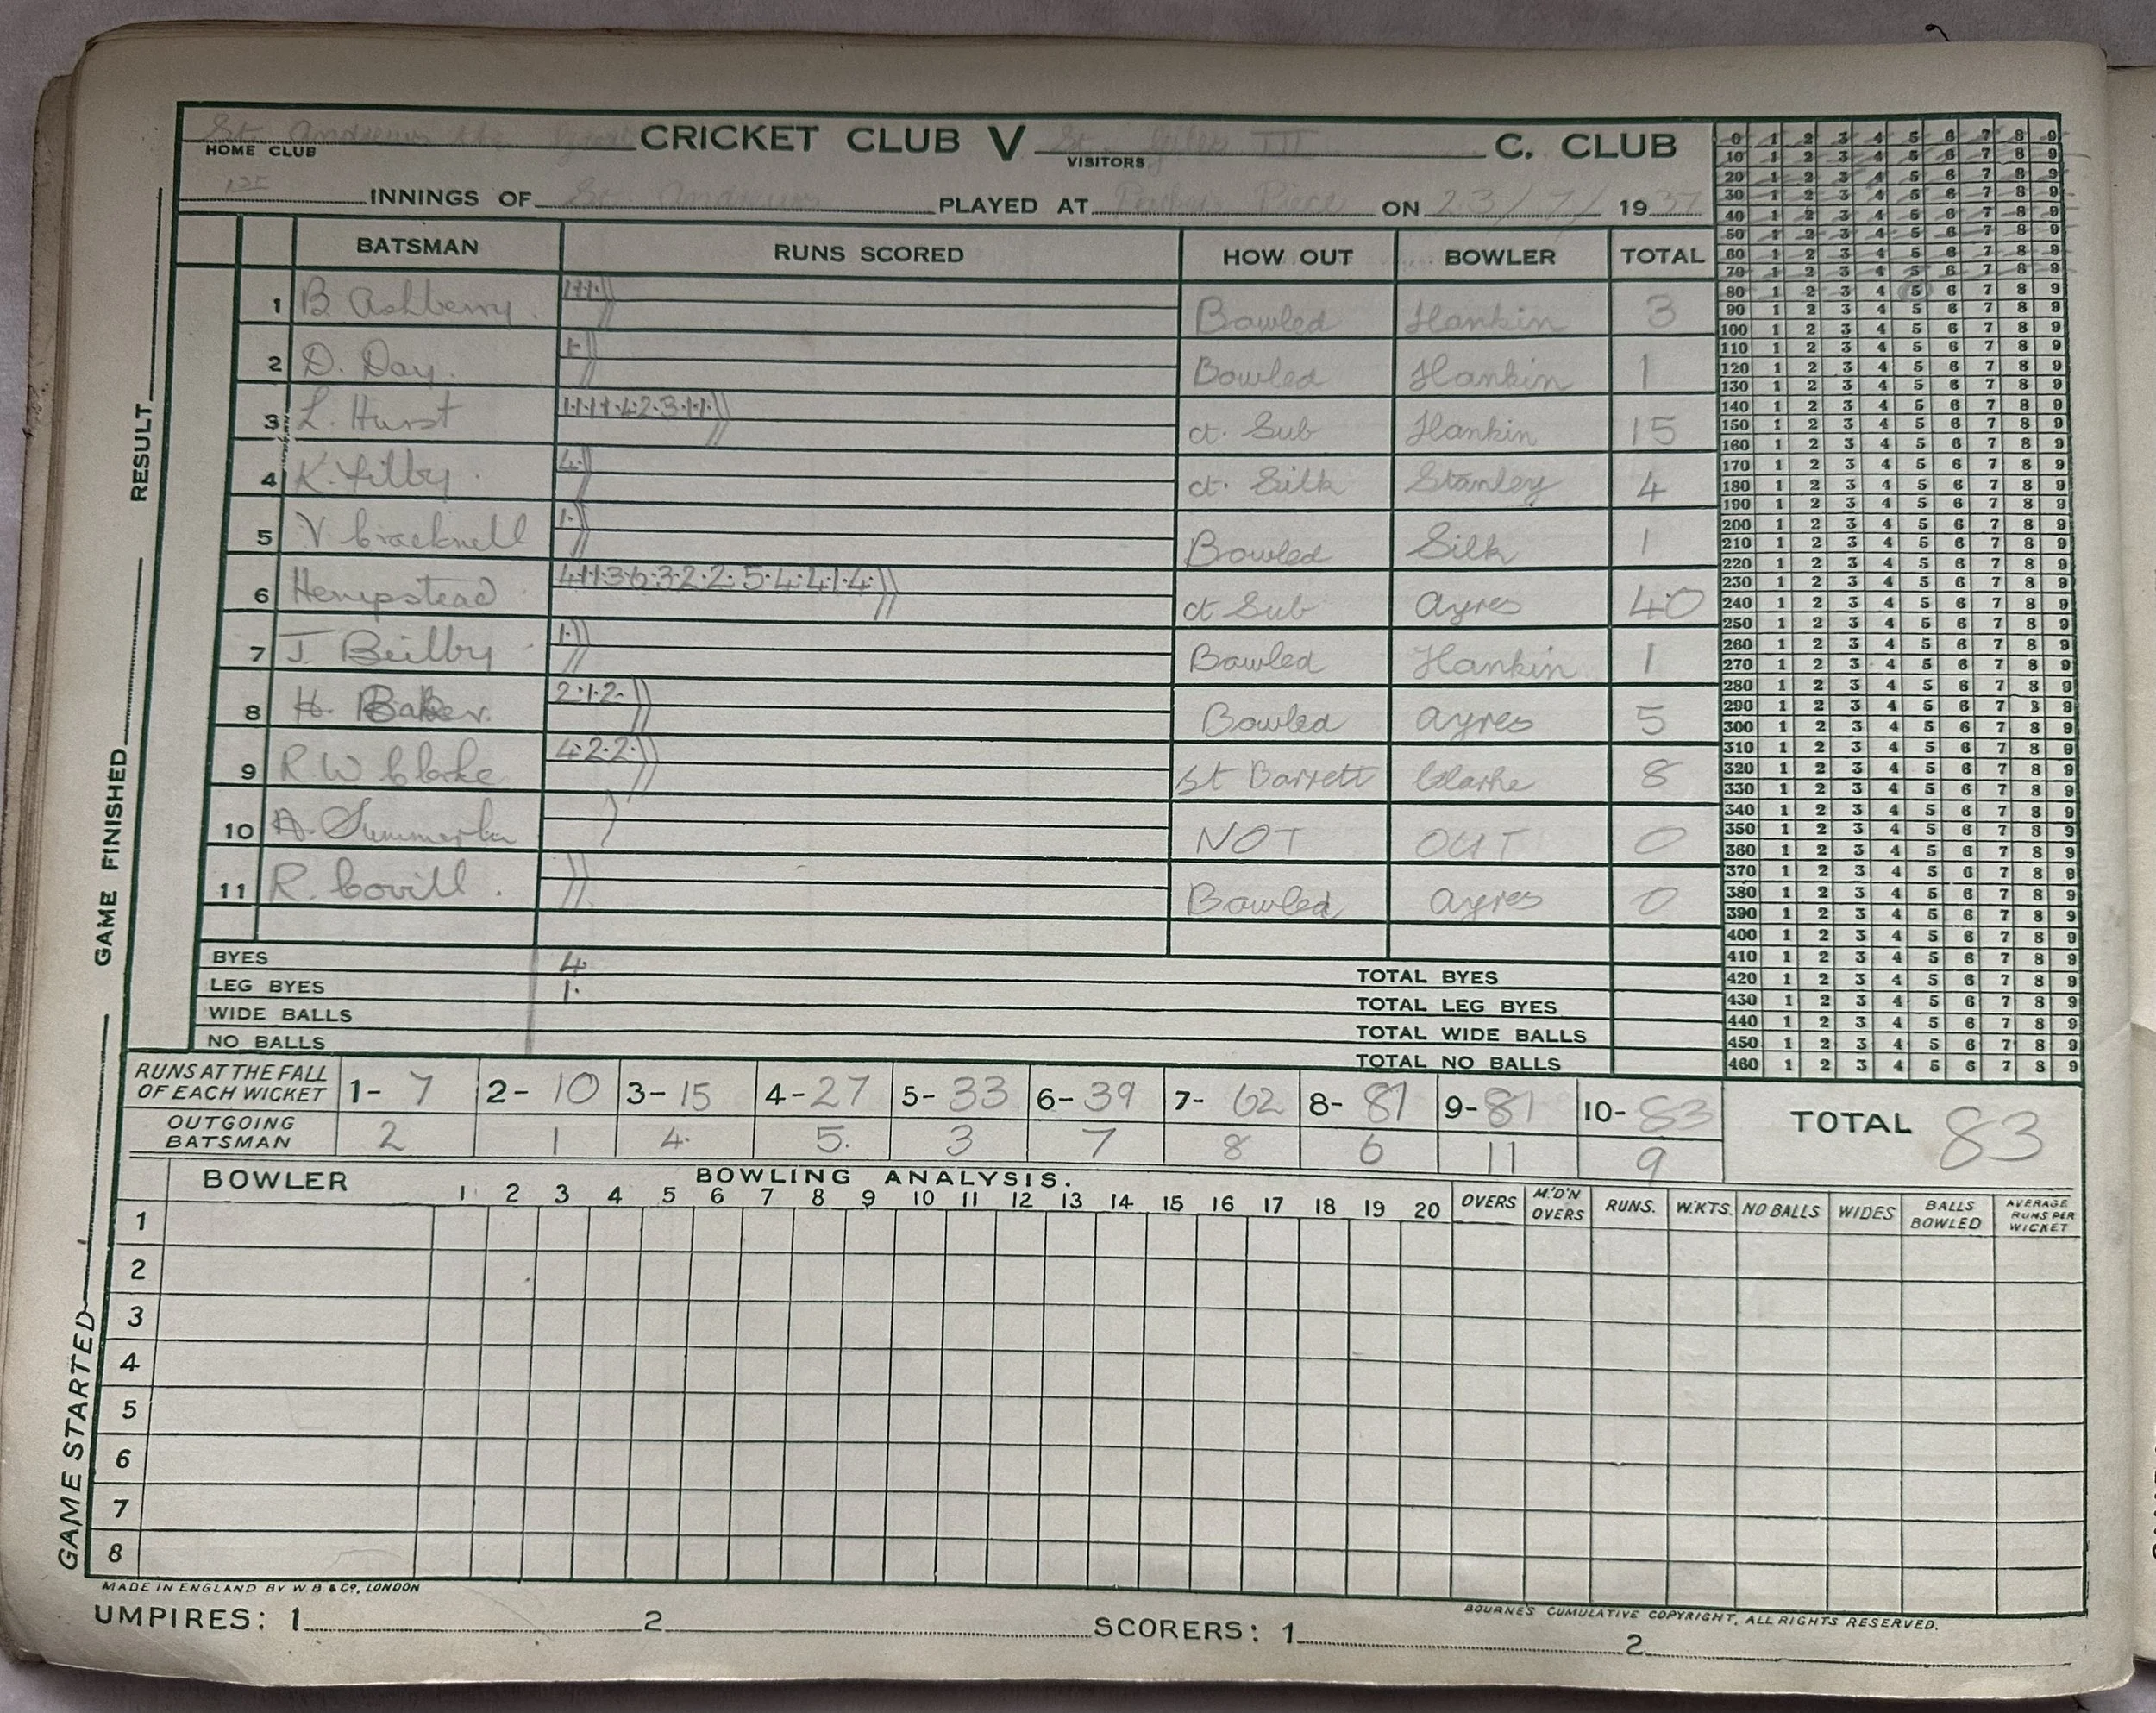 St. Andrews the Great CRICKET CLUB V St. Giles III C. CLUB
HOME CLUB VISITORS
1st INNINGS OF St. Andrews PLAYED AT Parkers Piece ON 23/7/1937
BATSMAN RUNS SCORED HOW OUT BOWLER TOTAL
1 B. Ashberry. 1·1·1· Bowled Hankin 3
2 D. Day. 1· Bowled Hankin 1
3 L. Hurst 1·1·1·1·4·2·3·1·1· ct. Sub Hankin 15
4 K. Filby. 4· ct. Silk Stanley 4
5 V. Cracknell 1· Bowled Silk 1
6 Hempstead 4·1·1·3·6·3·2·2·5·4·4·1·4· ct Sub Ayres 40
7 J Beilby 1· Bowled Hankin 1
8 H. Baker. 2·1·2· Bowled Ayres 5
9 R.W Clarke 4·2·2· St Barrett Clarke 8
10 A. NOT OUT 0
11 R. Covill. Bowled Ayres 0
BYES 4 TOTAL BYES
LEG BYES 1· TOTAL LEG BYES
WIDE BALLS TOTAL WIDE BALLS
NO BALLS TOTAL NO BALLS
0 1 2 3 4 5 6 7 8 9
10 1 2 3 4 5 6 7 8 9
20 1 2 3 4 5 6 7 8 9
30 1 2 3 4 5 6 7 8 9
40 1 2 3 4 5 6 7 8 9
50 1 2 3 4 5 6 7 8 9
60 1 2 3 4 5 6 7 8 9
70 1 2 3 4 5 6 7 8 9
80 1 2 3 4 5 6 7 8 9
90 1 2 3 4 5 6 7 8 9
100 1 2 3 4 5 6 7 8 9
110 1 2 3 4 5 6 7 8 9
120 1 2 3 4 5 6 7 8 9
130 1 2 3 4 5 6 7 8 9
140 1 2 3 4 5 6 7 8 9
150 1 2 3 4 5 6 7 8 9
160 1 2 3 4 5 6 7 8 9
170 1 2 3 4 5 6 7 8 9
180 1 2 3 4 5 6 7 8 9
190 1 2 3 4 5 6 7 8 9
200 1 2 3 4 5 6 7 8 9
210 1 2 3 4 5 6 7 8 9
220 1 2 3 4 5 6 7 8 9
230 1 2 3 4 5 6 7 8 9
240 1 2 3 4 5 6 7 8 9
250 1 2 3 4 5 6 7 8 9
260 1 2 3 4 5 6 7 8 9
270 1 2 3 4 5 6 7 8 9
280 1 2 3 4 5 6 7 8 9
290 1 2 3 4 5 6 7 8 9
300 1 2 3 4 5 6 7 8 9
310 1 2 3 4 5 6 7 8 9
320 1 2 3 4 5 6 7 8 9
330 1 2 3 4 5 6 7 8 9
340 1 2 3 4 5 6 7 8 9
350 1 2 3 4 5 6 7 8 9
360 1 2 3 4 5 6 7 8 9
370 1 2 3 4 5 6 7 8 9
380 1 2 3 4 5 6 7 8 9
390 1 2 3 4 5 6 7 8 9
400 1 2 3 4 5 6 7 8 9
410 1 2 3 4 5 6 7 8 9
420 1 2 3 4 5 6 7 8 9
430 1 2 3 4 5 6 7 8 9
440 1 2 3 4 5 6 7 8 9
450 1 2 3 4 5 6 7 8 9
460 1 2 3 4 5 6 7 8 9
RUNS AT THE FALL OF EACH WICKET 1- 7 2- 10 3- 15 4- 27 5- 33 6- 39 7- 62 8- 81 9- 81 10- 83 TOTAL 83
OUTGOING BATSMAN 2 1 4. 5. 3 7 8 6 11 9
BOWLER BOWLING ANALYSIS.
1 2 3 4 5 6 7 8 9 10 11 12 13 14 15 16 17 18 19 20 OVERS M.'D'N OVERS RUNS. W.KTS. NO BALLS WIDES BALLS BOWLED AVERAGE RUNS PER WICKET
1
2
3
4
5
6
7
8
MADE IN ENGLAND BY W B & Co, LONDON
BOURNE'S CUMULATIVE COPYRIGHT, ALL RIGHTS RESERVED.
UMPIRES: 1 2 SCORERS: 1 2
GAME STARTED GAME FINISHED RESULT